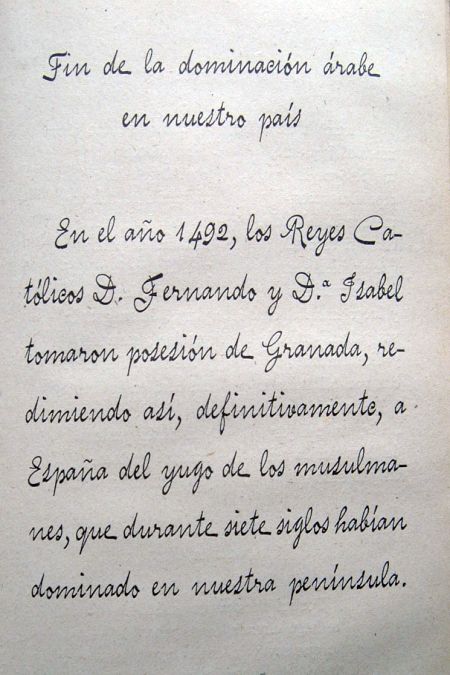 Fin de la dominación árabe
en nuestro país
En el año 1492, los Reyes Ca-
tólicos D. Fernando y D.ª Isabel
tomaron posesión de Granada, re-
dimiendo así, definitivamente, a
España del yugo de los musulma-
nes, que durante siete siglos habían
dominado en nuestra península.